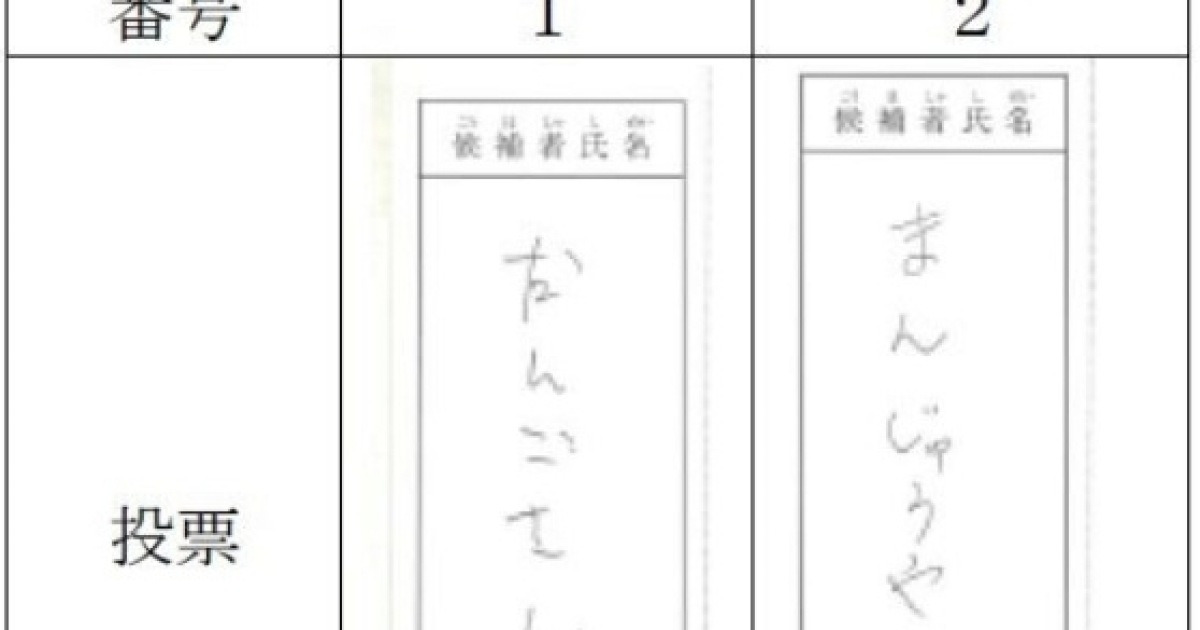 番号 1 2
投票
こう ほ しゃ し めい
候補者氏名
んご
こう ほ しゃ し めい
候補者氏名
まんじゅうや